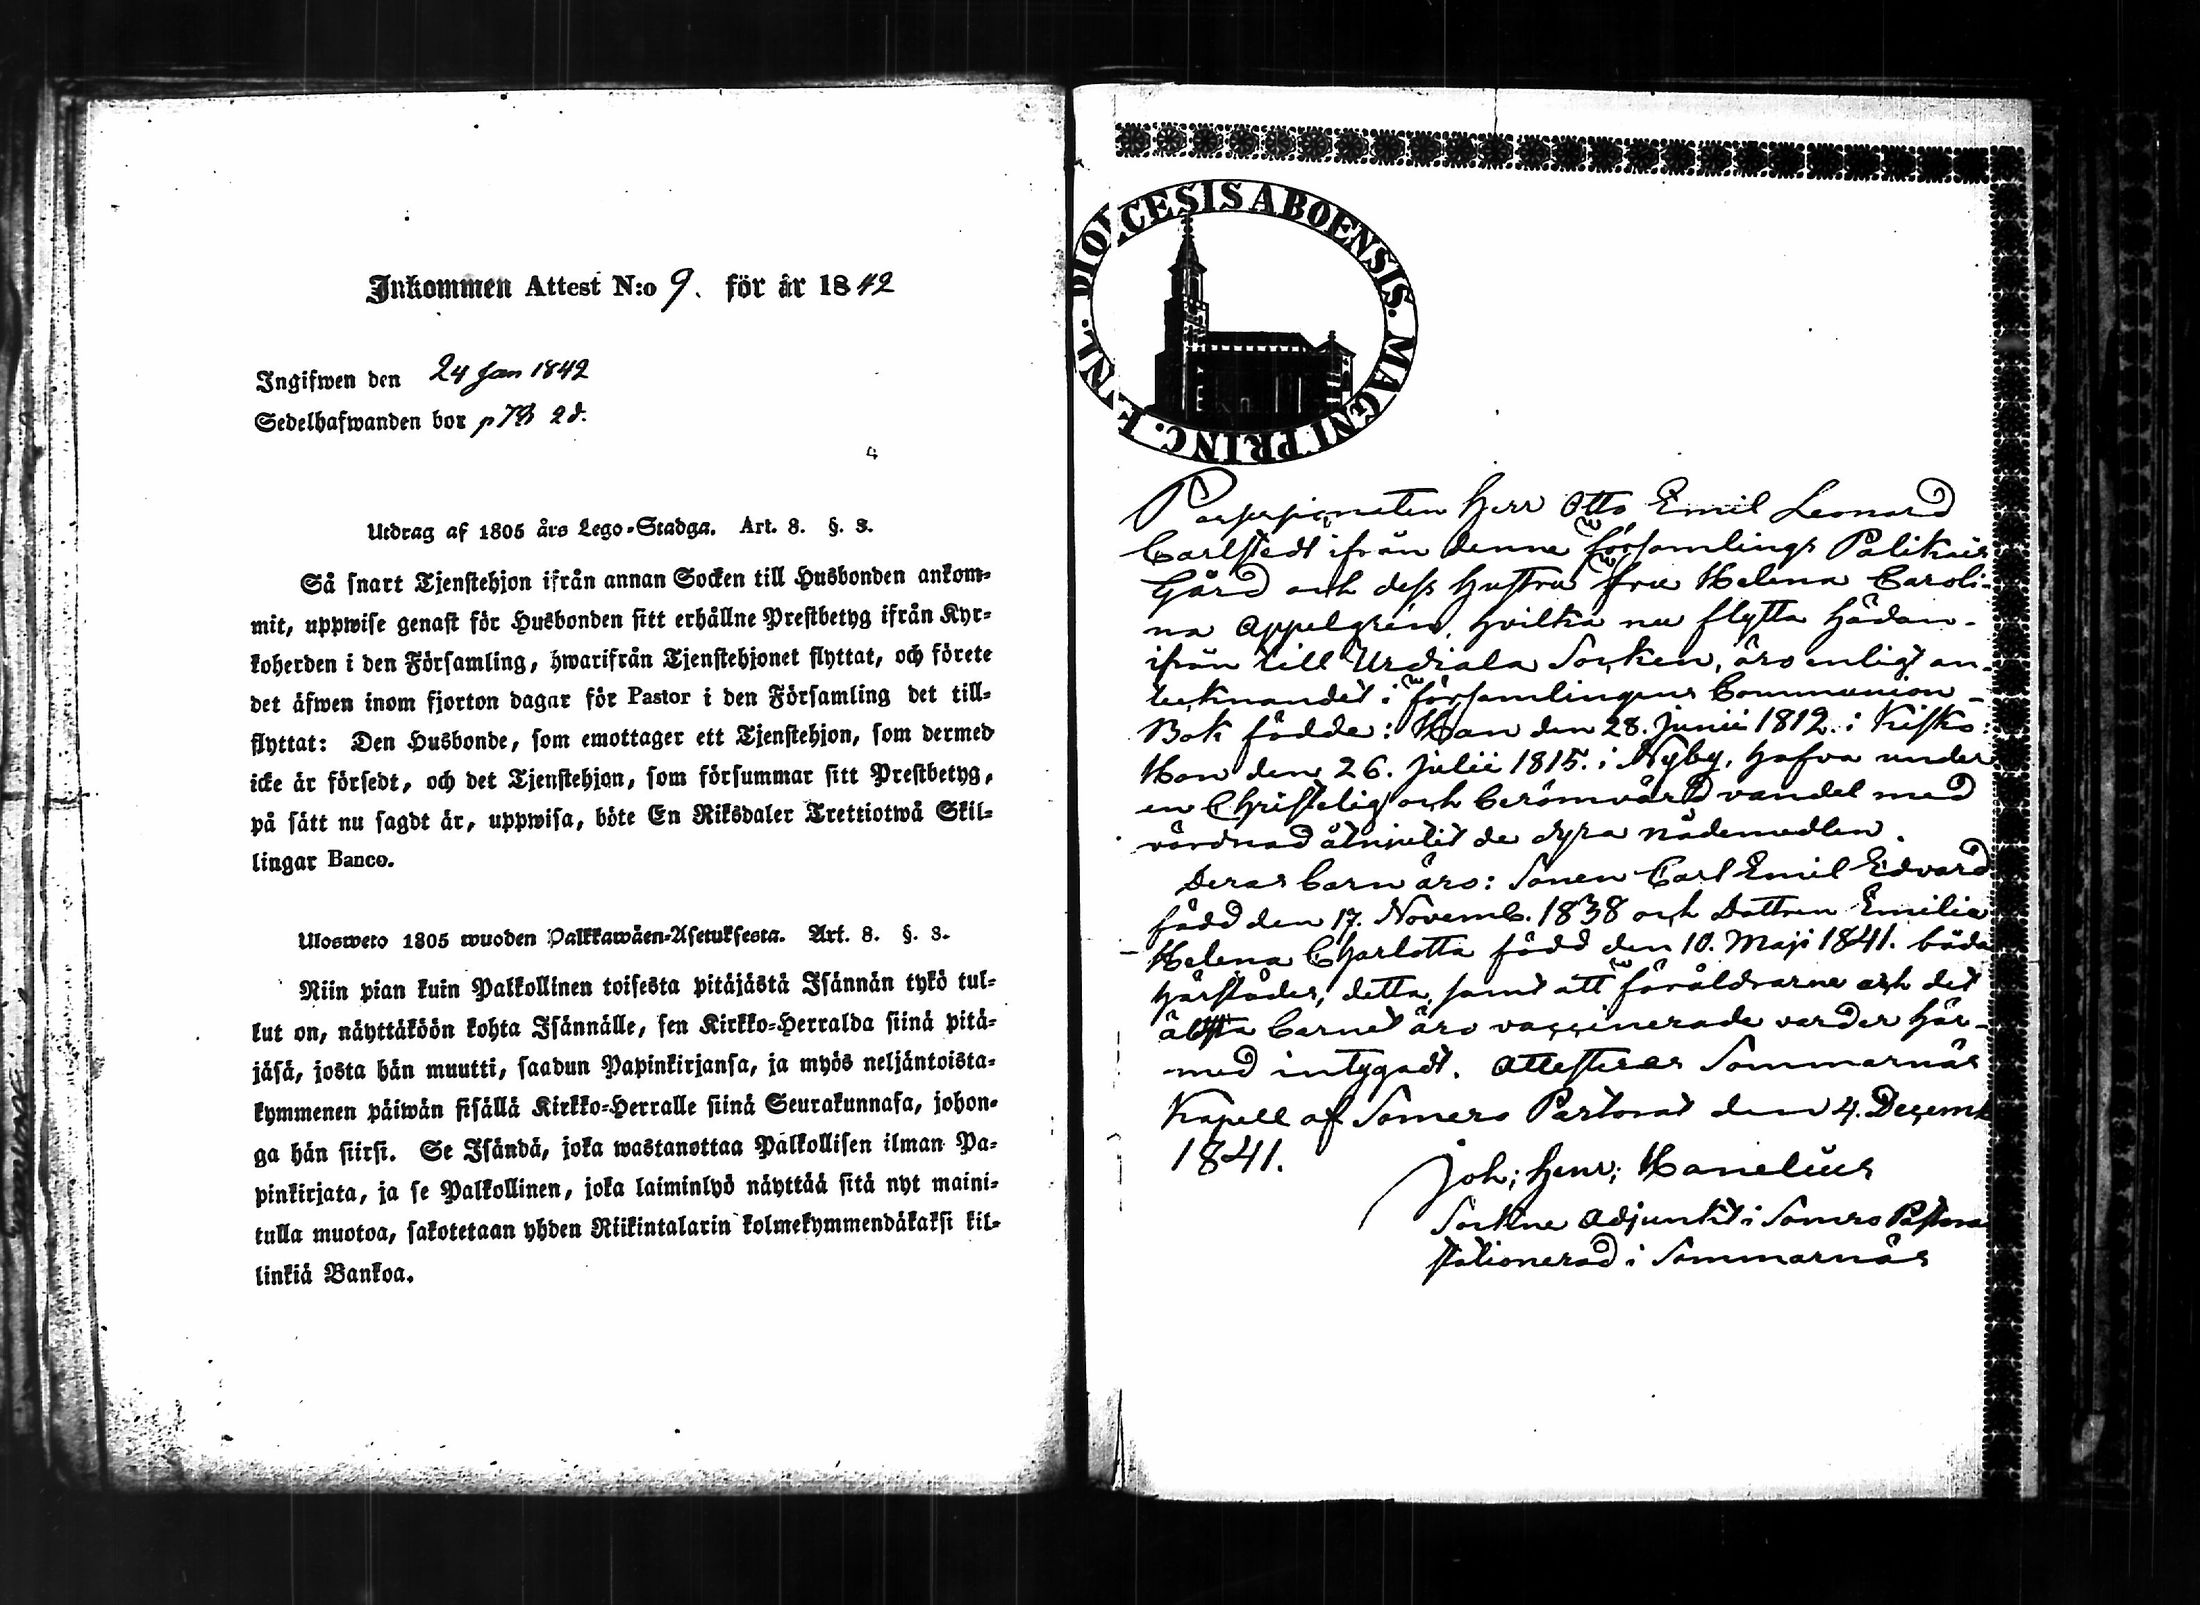 Inkommen Attest N:o 9. för år 1842
Ingifwen den 24 Jan 1842
Sedelhafwanden bor p 78 2d.
Utdrag af 1805 års Lego-Stadga. Art. 8. §. 3.
Så snart Tjenstehjon ifrån annan Socken till Husbonden ankom-
mit, uppwise genast för Husbonden sitt erhållne Prestbetyg ifrån Kyr-
koherden i den Församling, hwarifrån Tjenstehjonet flyttat, och förete
det äfwen inom fjorton dagar för Pastor i den Församling det till-
flyttat: Den Husbonde, som emottager ett Tjenstehjon, som dermed
icke är försedt, och det Tjenstehjon, som försummar sitt Prestbetyg,
på sätt nu sagdt är, uppwisa, böte En Riksdaler Trettiotwå Skil-
lingar Banco.
Ulosweto 1805 wuoden Palkkawäen-Asetuksesta. Art. 8. §. 3.
Niin pian kuin Palkollinen toisesta pitäjästä Isännän tykö tul-
lut on, näyttäköön kohta Isännälle, sen Kirkko-Herralda siinä pitä-
jäsä, josta hän muutti, saadun Papinkirjansa, ja myös neljäntoista-
kymmenen päiwän sisällä Kirkko-Herralle siinä Seurakunnasa, johon-
ga hän siirsi. Se Isändä, joka wastanottaa Palkollisen ilman Pa-
pinkirjata, ja se Palkollinen, joka laiminlyö näyttää sitä nyt maini-
tulla muotoa, sakotetaan yhden Riikintalarin kolmekymmendäkaksi kil-
linkiä Bankoa.
DIOECESIS ABOENSIS. MAGNI PRINC. FINL.
Herr Otto Emil Leonard
Carlstedt ifrån denne församlings Palikais
Gård och dess hustru fru Helena Caroli-
na Appelgrén, hvilka nu flytta hädan-
ifrån till Urdiala Socken, äro enligt an-
tecknandet i församlingens Communion-
Bok födde: Han den 28. Junii 1812. i Kisko:
Hon den 26. Julii 1815. i Nyby, hafva under
en Christelig och berömvärd vandel med
vördnad åtnjutit de dyra nådemedlen.
Deras barn äro: Sonen Carl Emil Edvard
född den 17. Novemb. 1838 och Dottren Emilia
Helena Charlotta född den 10. Maji 1841. båda
härstädes, detta, samt att föräldrarne och det
äldsta barnet äro vaccinerade varder här-
med intygadt. Attesteras Sommarnäs
Kapell af Somero Pastorat den 4. Decemb
1841.
Joh; Henr; Hanelius
Sockne Adjunkt i Somero Pastora
stationerad i Sommarnäs